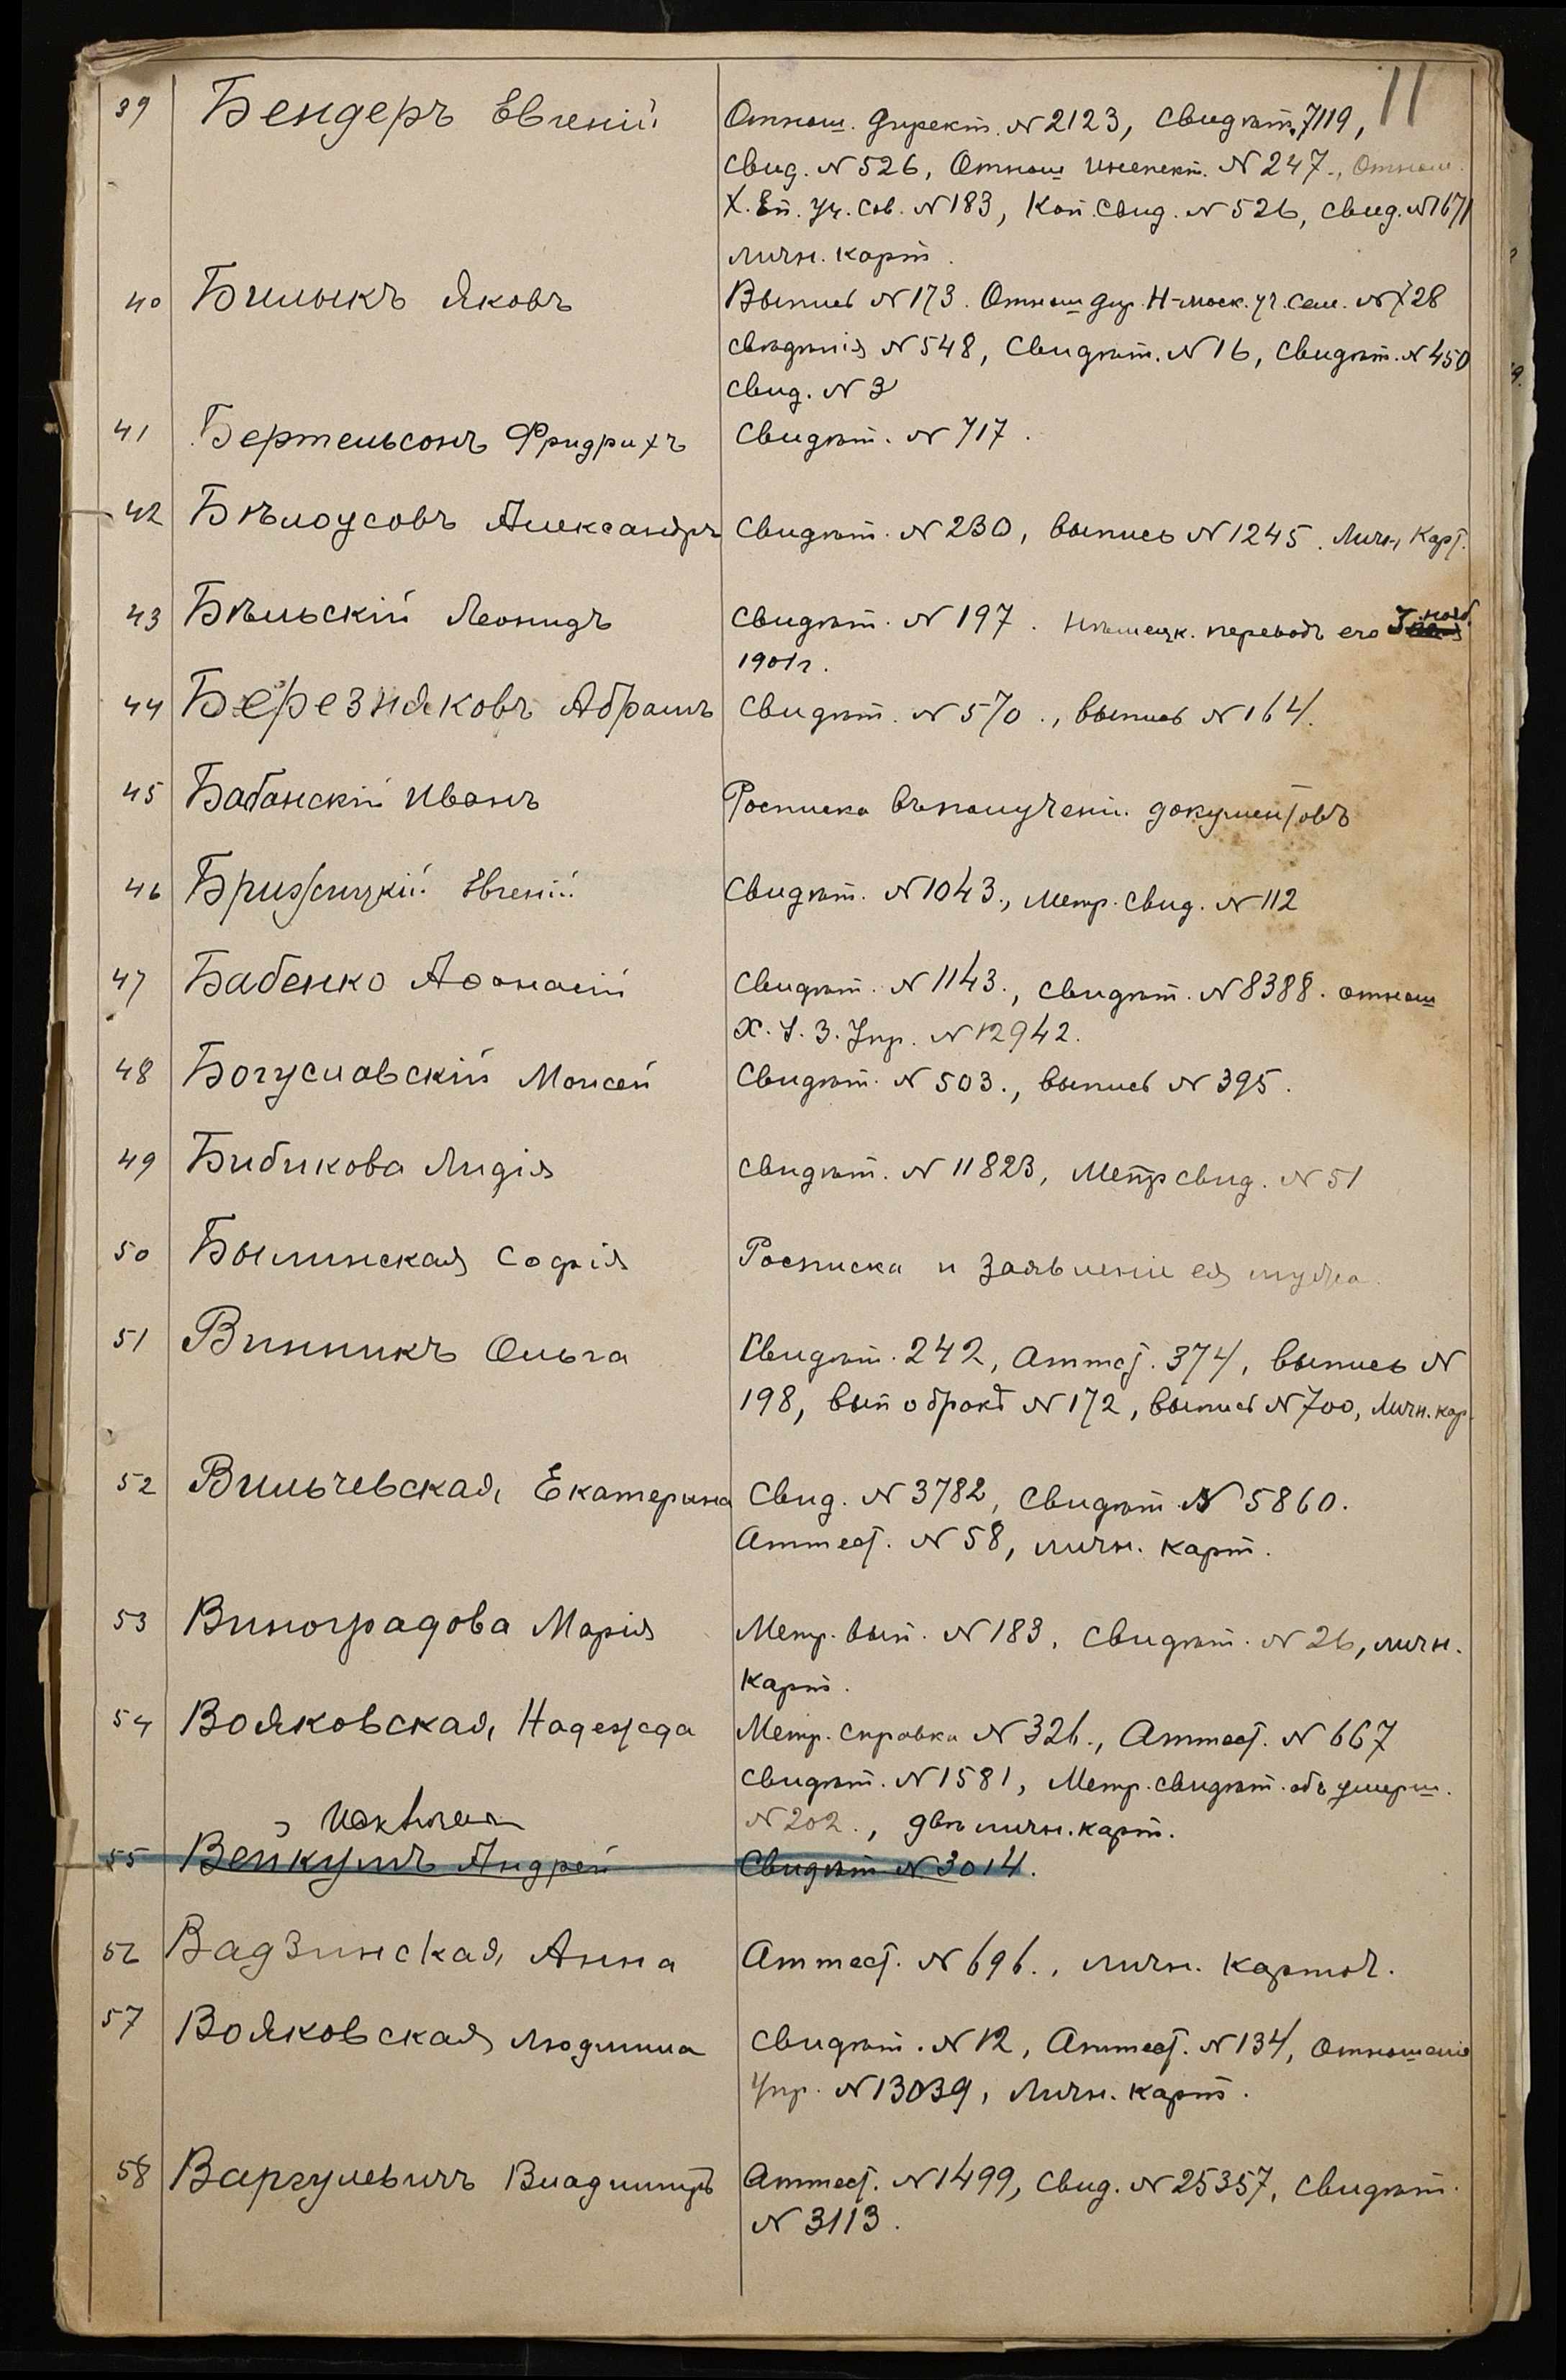 11
39 Бендеръ Евгеній Отнош. Директ. № 2123, Свидѣт. 7119,
Свид. № 526, Отнош Инспект. № 247., Отнош.
Х. Еп. Уч. Сов. № 183, Коп. Свид. № 526, Свид. № 1671
личн. карт.
40 Билыкъ Яковъ Выпись № 173. Отнош дир. Н-моск. уч. Сем. № 728
свѣдѣнія № 548, Свидѣт. № 16, Свидѣт. № 450
Свид. № 3
41 Бертельсонъ Фридрихъ Свидѣт. № 717.
42 Бѣлоусовъ Александръ Свидѣт. № 230, выпись № 1245. Личн, Карт.
43 Бѣльскій Леонидъ Свидѣт. № 197. Нѣмецк. переводъ его 3 нояб.
1901 г.
44 Березняковъ Абрамъ Свидѣт. № 570., выпись № 164.
45 Бабанскій Иванъ Росписка въ полученіи документовъ
46 Бржсицкій Евгеній Свидѣт. № 1043., Метр. Свид. № 112
47 Бабенко Аѳонасій Свидѣт. № 1143., Свидѣт. № 8388. отнош
Х. У. З. Упр. № 12942.
48 Богуславскій Моисей Свидѣт. № 503., выпись № 395.
49 Бибикова Лидія Свидѣт. № 11823, Метр свид. № 51
50 Былинская Софія Росписка и Заявленіе ея мужа.
51 Винникъ Ольга Свидѣт. 242, Аттест. 374, выпись №
198, вып о бракѣ № 172, выпись № 700, Личн. кар.
52 Вильчевская, Екатерина Свид. № 3782, Свидѣт. № 5860.
Аттест. № 58, личн. карт.
53 Виноградова Марія Метр. вып. № 183, Свидѣт. № 26, личн.
карт.
54 Вояковская, Надежда Метр. Справка № 326., Аттест. № 667
Свидѣт. № 1581, Метр. свидѣт. объ умерш.
№ 202., двѣ личн. карт.
55 Вейкумъ Андрей Свидѣт № 3014.
56 Вадзинская, Анна Аттест. № 696., личн. карточ.
57 Вояковская Людмила Свидѣт. № 12, Аттест. № 134, Отношеніе
Упр. № 13039, Личн. карт.
58 Варгулевичъ Владиміръ Аттест. № 1499, Свид. № 25357, Свидѣт.
№ 3113.